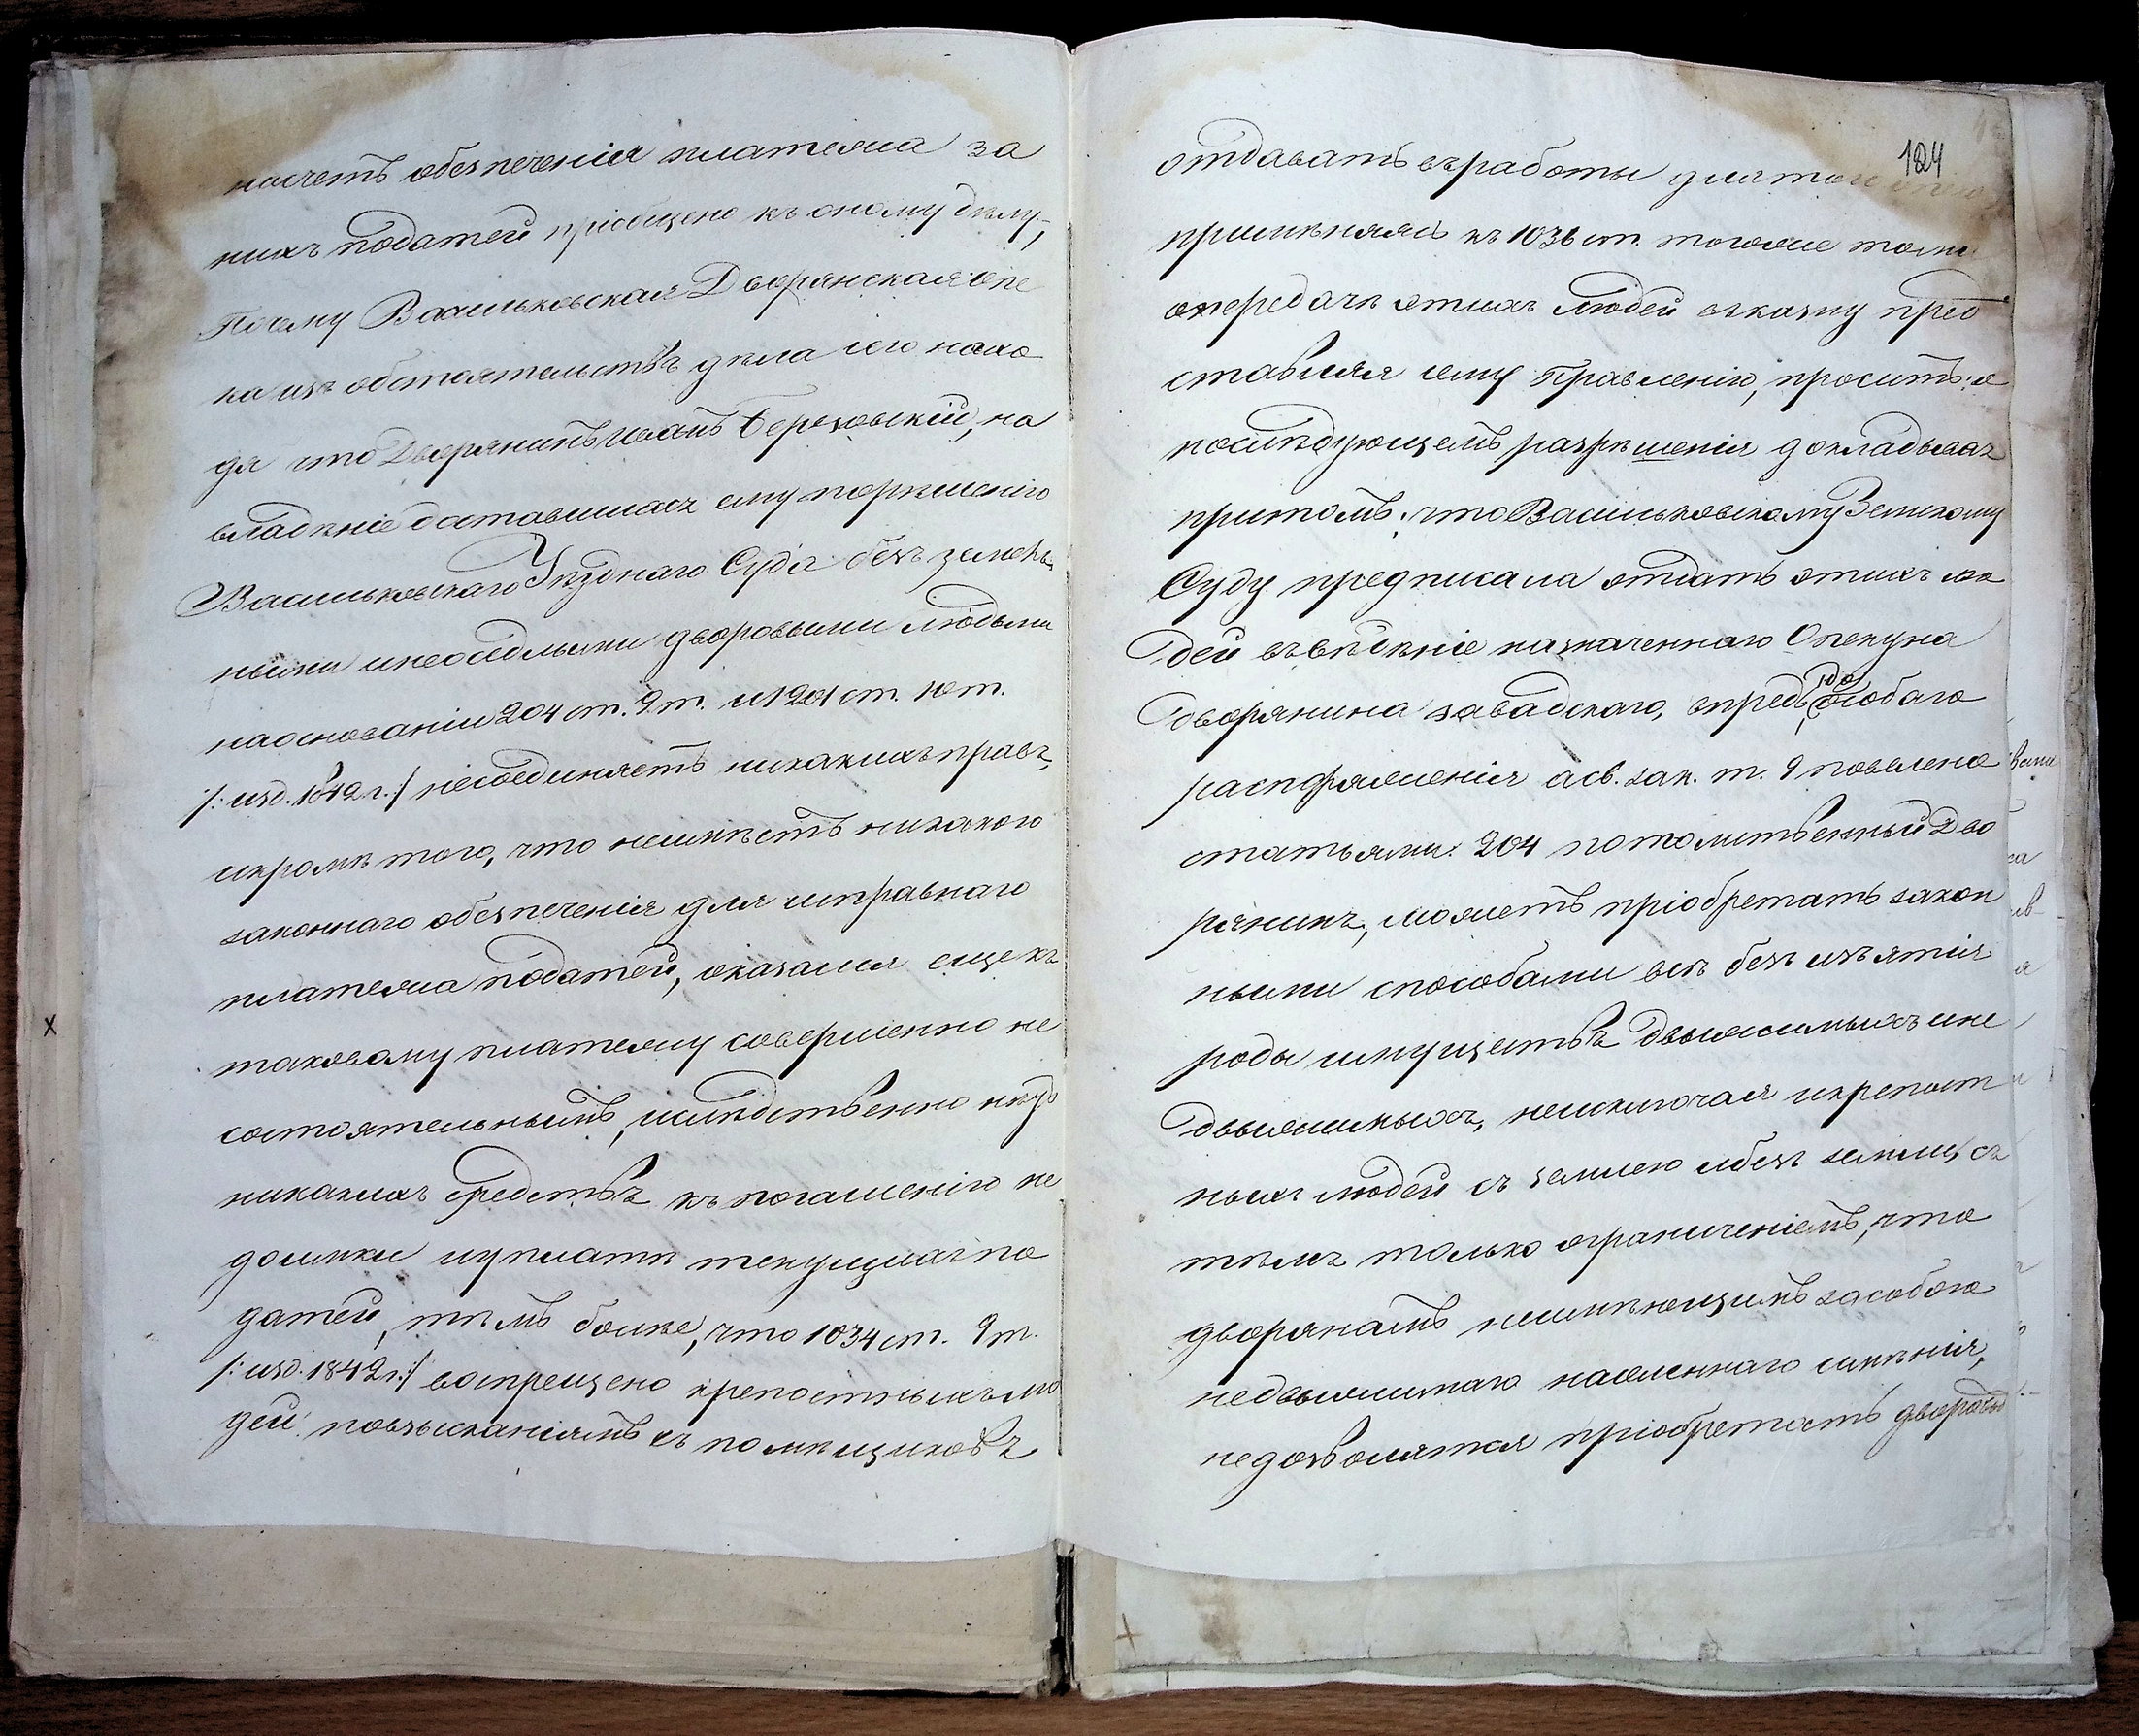 насчетъ обезпеченія платежа за
нихъ податей пріобщено къ оному дѣлу,
Почему Васильковская Дворянская Опе
ка изъ обстоятельствъ дѣла сего нахо
дя что Дворянинъ Иванъ Березовскій, на
владѣніе доставшимся ему по рѣшенію
Васильковскаго Уѣзднаго Суда безъ земель
ными и неосѣдлыми дворовыми людьми
на основаніи 204 ст. 9 т. и 1201 ст. 10 т.
/: изд. 1842 г. :/ несоединяетъ никакихъ правъ,
и кромѣ того, что неимѣетъ никакого
законнаго обезпеченія для исправнаго
платежа податей, оказался еще къ
таковому платежу совершенно не
состоятельнымъ, и слѣдственно нѣтъ
никакихъ средствъ къ погашенію не
доимки и уплатѣ текущихъ по
датей, тѣмъ болѣе, что 1034 ст. 9 т.
/: изд. 1842 г. :/ воспрещено крепостныхъ лю
дей по взысканіямъ съ помѣщиковъ
184
отдавать въ работы для того
примѣняясь къ 1036 ст. тогоже тома
о передачѣ этихъ людей въ казну пред
ставляя сему Правленію, проситъ о
послѣдующемъ разрѣшенія докладывая
притомъ: что Васильковскому Земскому
Суду предписала отдать этихъ лю
дей въ вѣденіе назначеннаго Опекуна
дворянина Завадскаго, впредь до особаго
распоряженія а св. зак. т. 9 повелено
статьями: 204 потомственный Дво
рянинъ, можетъ пріобретать закон
ными способами всѣ безъ изъятія
роды имуществъ движимыхъ и не
движимыхъ, неисключая и крепост
ныхъ людей съ землею и безъ земли, съ
тѣмъ только ограниченіемъ, что
дворянамъ неимѣющимъ за собою
недвижимаго населеннаго имѣнія,
недозволяется пріобретать дворовых